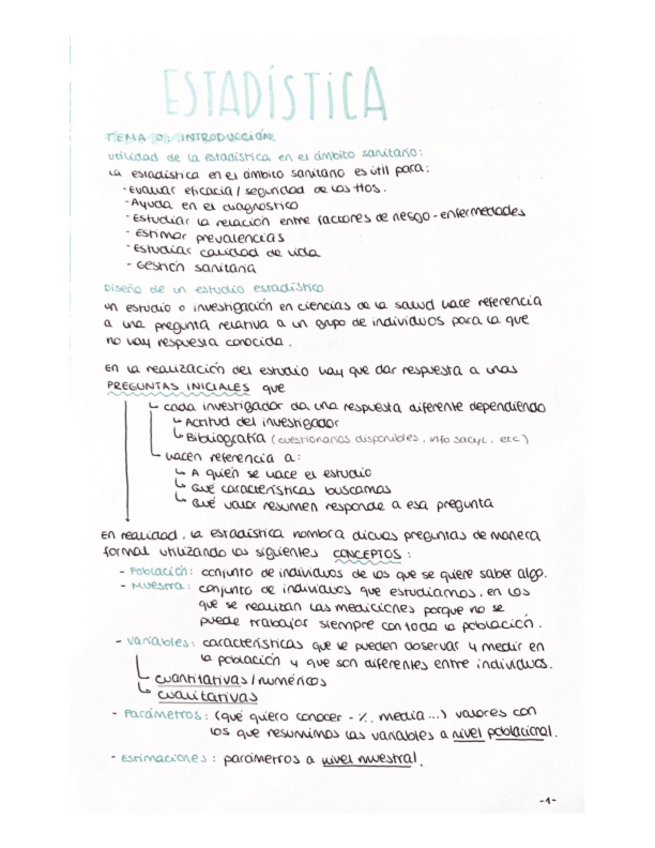 ESTADÍSTICA
TEMA 0: INTRODUCCIÓN
Utilidad de la estadística en el ámbito sanitario:
La estadística en el ámbito sanitario es útil para:
- Evaluar eficacia/seguridad de los ttos.
- Ayuda en el diagnostico
- Estudiar la relación entre factores de riesgo-enfermedades
- Estimar prevalencias
- Estudiar calidad de vida
- Gestión sanitaria
Diseño de un estudio estadístico
Un estudio o investigación en ciencias de la salud hace referencia
a una pregunta relativa a un grupo de individuos para la que
no hay respuesta conocida.
En la realización del estudio hay que dar respuesta a unas
PREGUNTAS INICIALES que
↳ cada investigador da una respuesta diferente dependiendo
↳ Actitud del investigador
↳ Bibliografía (cuestionarios disponibles, info sacyl, etc)
↳ hacen referencia a:
↳ A quién se hace el estudio
↳ Qué características buscamos
↳ Qué valor resumen responde a esa pregunta
En realidad, la estadística nombra dichas preguntas de manera
formal utilizando los siguientes CONCEPTOS:
- Población: conjunto de individuos de los que se quiere saber algo.
- Muestra: conjunto de individuos que estudiamos, en los
que se realizan las mediciones porque no se
puede trabajar siempre con toda la población.
- Variables: características que se pueden observar y medir en
la población y que son diferentes entre individuos.
↳ cuantitativas/numéricos
↳ cualitativas
- Parámetros: (qué quiero conocer - %, media...) valores con
los que resumimos las variables a nivel poblacional.
- Estimaciones: parámetros a nivel muestral.
-1-